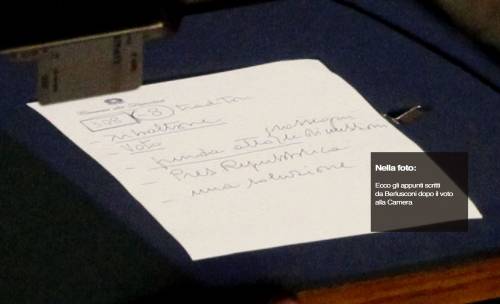 308 (-8) traditori
- ribaltone
- Voto
- prenda atto
- Pres Repubblica
- una soluzione
Nella foto:
Ecco gli appunti scritti
da Berlusconi dopo il voto
alla Camera